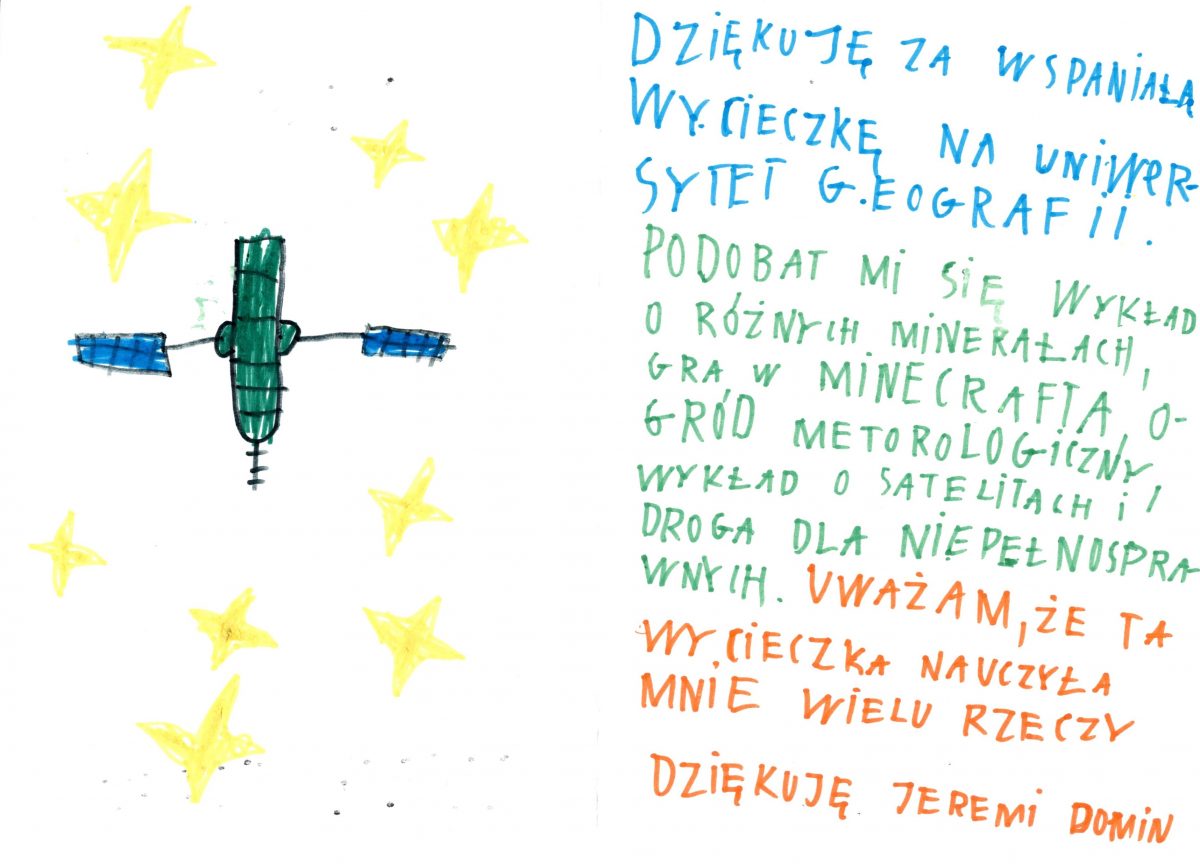 DZIĘKUJĘ ZA WSPANIAŁĄ
WY.CIECZKĘ NA UNIWER-
SYTET G.EOGRAFII.
PODOBAT MI SIĘ WYKŁAD
O RÓŻNYCH MINERAŁACH,
GRA W MINECRAFTA, O-
GRÓD METOROLOGICZNY,
WYKŁAD O SATELITACH i
DROGA DLA NIEPEŁNOSPRA-
WNYCH. UWAŻAM, ŻE TA
WY.CIECZKA NAUCZYŁA
MNIE WIELU RZECZY
DZIĘKUJĘ JEREMI DOMIN